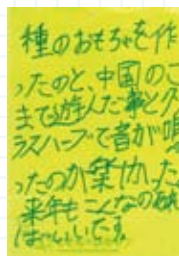 種のおもちゃを作
ったのと、中国のこ
まで遊んだ事とグ
ラスハープで音が鳴
ったのが楽しかった
来年もこんなのあれ
ばいいです